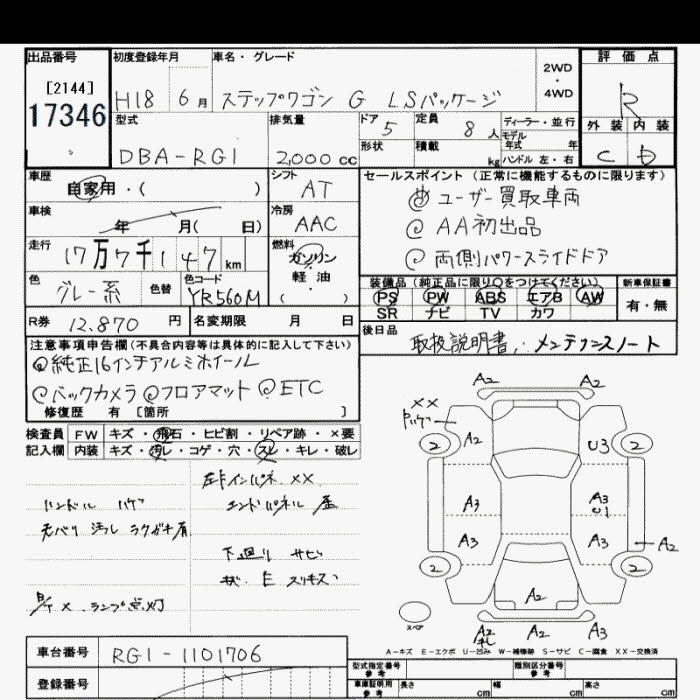 出品番号 初度登録年月 車名・グレード 評価点
[2144] 2WD・4WD
17346 H18 6月 ステップワゴン G LSパッケージ R
型式 排気量 ドア 5 定員 8人 ディーラー・並行 外装 内装
モデル年式 年
DBA-RG1 2,000cc 形状 積載 kg ハンドル 左・右 C D
車歴 シフト セールスポイント(正常に機能するものに限ります)
自家用・( ) AT @ユーザー買取車両
車検 冷房
年 月( 日) AAC @AA初出品
走行 燃料
17万7千147km ガソリン・軽油・( ) @両側パワースライドドア
色 色替 色コード 装備品(純正品に限り○をつけてください) 新車保証書
グレー系 YR560M PS PW ABS エアB AW 有・無
SR ナビ TV カワ
R券 12,870円 名変期限 月 日 後日品
取扱説明書, メンテナンスノート
注意事項申告欄(不具合内容等は具体的に記入して下さい)
@純正16インチアルミホイール
@バックカメラ @フロアマット @ETC
修復歴 有 [箇所 ]
検査員 FW キズ・飛石・ヒビ割・リペア跡・×要
記入欄 内装 キズ・汚レ・コゲ・穴・スレ・キレ・破レ
左右インパネ XX
ハンドル ハゲ エンドパネル
汚レ ラクガキ有
下廻り サビ
ランプ点灯
A2 A2
XX
2 A2 U3 2
A3 A3
U1
A3 A3 A2
2 2
A2
スペア
A2 A2 A3
A-キズ E-エクボ U-凹み W-補修跡 S-サビ C-腐食 XX-交換済
車台番号 RG1-1101706
型式指定番号 参考 類別区分番号 参考
登録番号 車庫証明用 参考 長さ cm 幅 cm 高さ cm